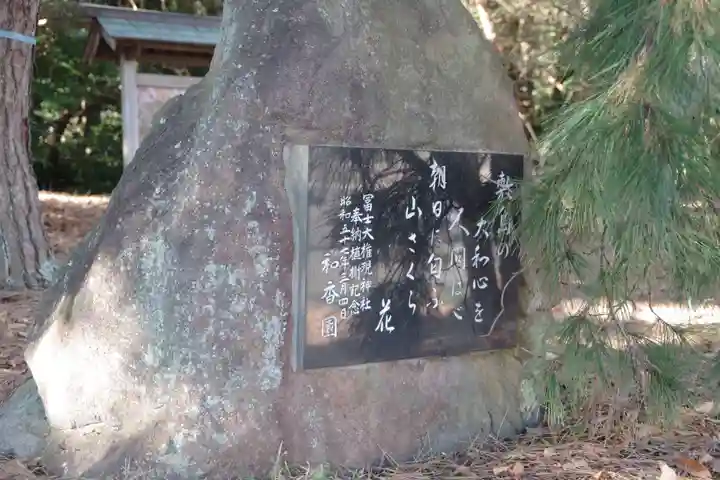 敷島の
大和心を
人問はば
朝日に匂ふ
山さくら
花
冨士大権現神社
奉納植樹記念
昭和五十七年三月四日
和香園